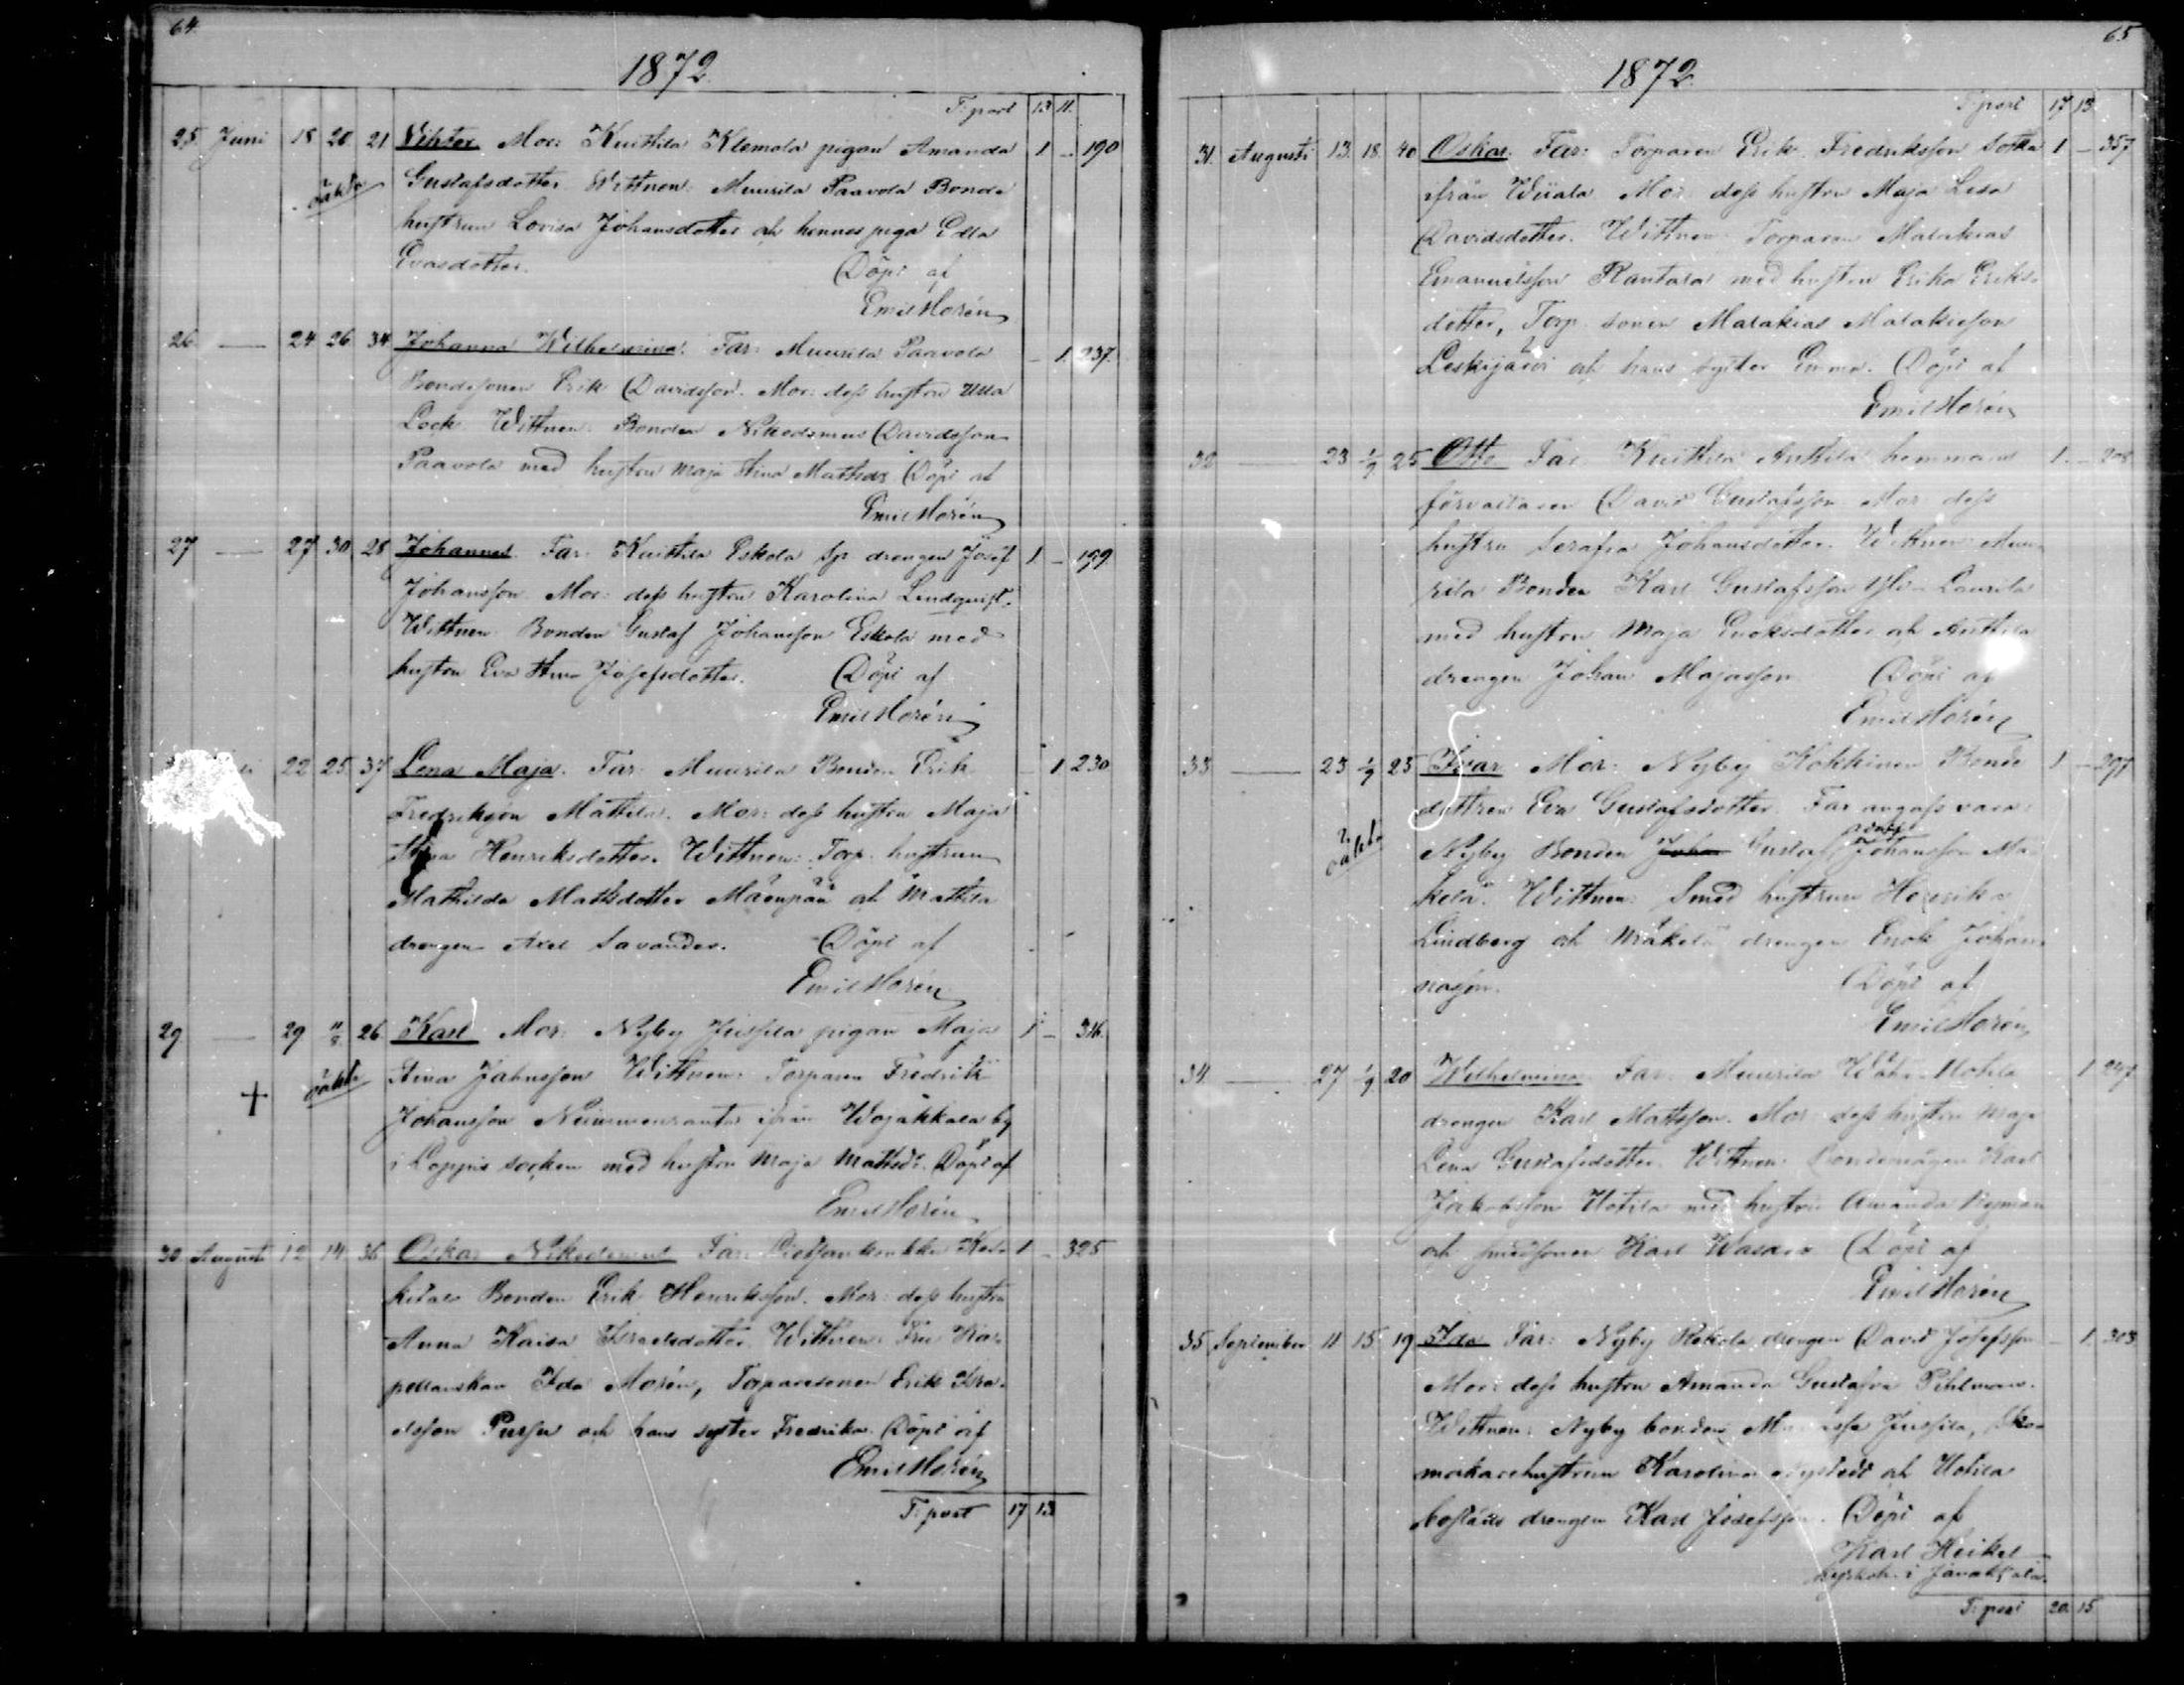 64.
1872.
T: port 13 11.
25. Juni 18 20 21 Viktor. Mor: Kuittila Klemola pigan Amanda 1 - 190
oäkta Gustafsdotter. Wittnen: Muurila Paavola Bonde
hustrun Lovisa Johansdotter och hennes piga Edla
Evasdotter. Döpt af
Emil Morén
26. — 24 26 34 Johanna Wilhelmina. Far: Muurila Paavola - 1. 237.
Bondesonen Erik Davidsson. Mor: dess hustru Ulla
Lock. Wittnen: Bonden Nikodemus Davidsson
Paavola med hustru Maja Stina Mattsdr Döpt af
Emil Morén
27 — 27 30 28 Johannes. Far: Kuittila Eskola drengen Josef 1 - 199.
Johansson. Mor: dess hustru Karolina Lindqvist.
Wittnen: Bonden Gustaf Johansson Eskola med
hustru Eva Stina Josefsdotter. Döpt af
Emil Morén
22 25 37 Lena Maja. Far: Muurila Bonden Erik - 1 230
Fredriksson Mattila. Mor: dess hustru Maja
Stina Henriksdotter. Wittnen: Torp. hustrun
Mathilda Mattsdotter Mäenpää och Mattila
drengen Axel Savander. Döpt af
Emil Morén
29 — 29 11/8 26 Karl. Mor: Nyby Jussila pigan Maja 1 - 316.
+ oäkta Stina Jahnsson. Wittnen: Torparen Fredrik
Johansson ifrån Wojakkala by
i Loppis socken med hustru Maja Mattsdr. Döpt af
Emil Morén
30 Augusti 12 14 36 Oskar Nikodemus. Far: 1 - 325
Bonden Erik Henriksson. Mor: dess hustru
Anna Kaisa Israelsdotter. Wittnen: Fru Ka-
pellanskan Ida Morén, Torparesonen Erik Isra-
elsson Pursu och hans syster Fredrika. Döpt af
Emil Morén
T: port 17 13
65
1872.
T: port 17 13
31. Augusti 13. 18. 40 Oskar. Far: Torparen Erik Fredriksson Sotka 1 - 357
ifrån Wiiala. Mor: dess hustru Maja Lisa
Davidsdotter. Wittnen: Torparen Malakias
Emanuelsson Rantara med hustru Erika Eriks-
dotter, Torp. sonen Malakias Malakiasson
Leskijärvi och hans syster Emma. Döpt af
Emil Morén
32 — 23 1/9 25 Otto. Far: Kuittila Anttila hemmans 1. - 208
förvaltaren David Gustafsson. Mor: dess
hustru Serafia Johansdotter. Wittnen: Muu-
rila Bonden Karl Gustafsson Yli-Laurila
med hustru Maja Enoksdotter och Anttila
drengen Johan Majasson. Döpt af
Emil Morén
33 — 23 1/9 25 Ivar. Mor: Nyby Kokkinen Bonde 1 - 297
dottren Eva Gustafsdotter. Far angafs vara
oäkta Nyby Bonden Johan Gustaf Adolf Johansson Mä-
kelä. Wittnen: Smed hustrun Henrika
Lindberg och Mäkelä drengen Enok Johan-
nasson. Döpt af
Emil Morén
34 — 27 1/9 20 Wilhelmina. Far: Muurila Wähä-Uotila - 1 247
drengen Karl Mattsson. Mor: dess hustru Maja
Lena Gustafsdotter. Wittnen: Bondemågen Karl
Jakobsson Uotila med hustru Amanda Nyman
och smedsonen Karl Wasara. Döpt af
Emil Morén
35 September 11 15 19 Ida. Far: Nyby Rekola drengen David Josefsson - 1. 303
Mor: dess hustru Amanda Gustafva Pihlman.
Wittnen: Nyby bonden Jussila, Sko-
makarehustrun Karolina Nystedt och Uotila
boställs drengen Karl Josefsson. Döpt af
Karl Heikel
kyrkoh. i Janakkala.
T: port 20. 15